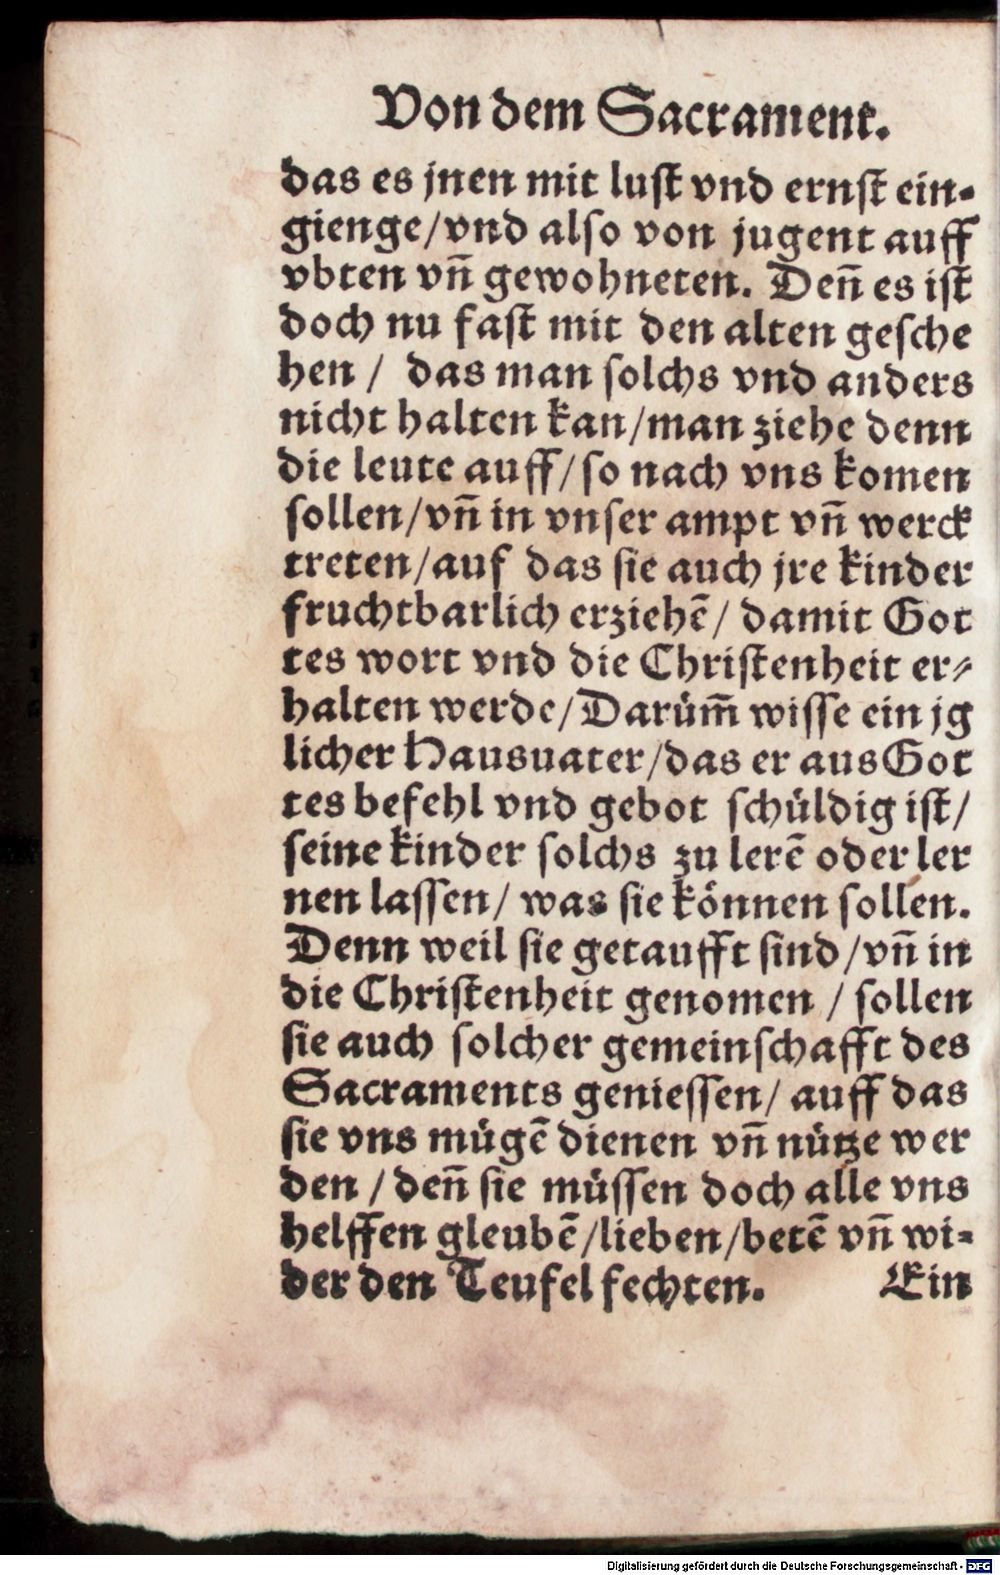 Von dem Sacrament.
das es jnen mit lust vnd ernst ein-
gienge/vnd also von jugent auff
vbten vn̄ gewohneten. Den̄ es ist
doch nu fast mit den alten gesche
hen / das man solchs vnd anders
nicht halten kan/man ziehe denn
die leute auff/so nach vns komen
sollen/vn̄ in vnser ampt vn̄ werck
treten/auf das sie auch jre kinder
fruchtbarlich erziehē/ damit Got
tes wort vnd die Christenheit er-
halten werde/Darüm̄ wisse ein jg
licher Hausuater/das er aus Got
tes befehl vnd gebot schüldig ist/
seine kinder solchs zu lerē oder ler
nen lassen/ was sie können sollen.
Denn weil sie getaufft sind/vn̄ in
die Christenheit genomen / sollen
sie auch solcher gemeinschafft des
Sacraments geniessen/ auff das
sie vns mügē dienen vn̄ nütze wer
den / den̄ sie müssen doch alle vns
helffen gleubē/lieben/betē vn̄ wi-
der den Teufel fechten. Ein
Digitalisierung gefördert durch die Deutsche Forschungsgemeinschaft - DFG